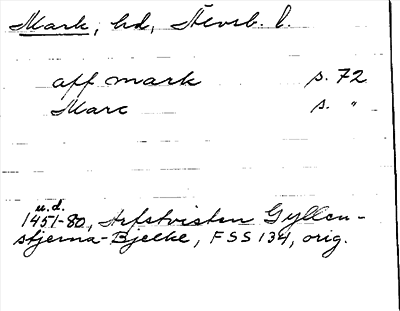 Mark, hd, Stevsb. l.
aff mark s. 72
Marc s. "
u.d.
1451-80, Arfstvisten Gyllen-
stjerna-Bjelke, FSS 134, orig.